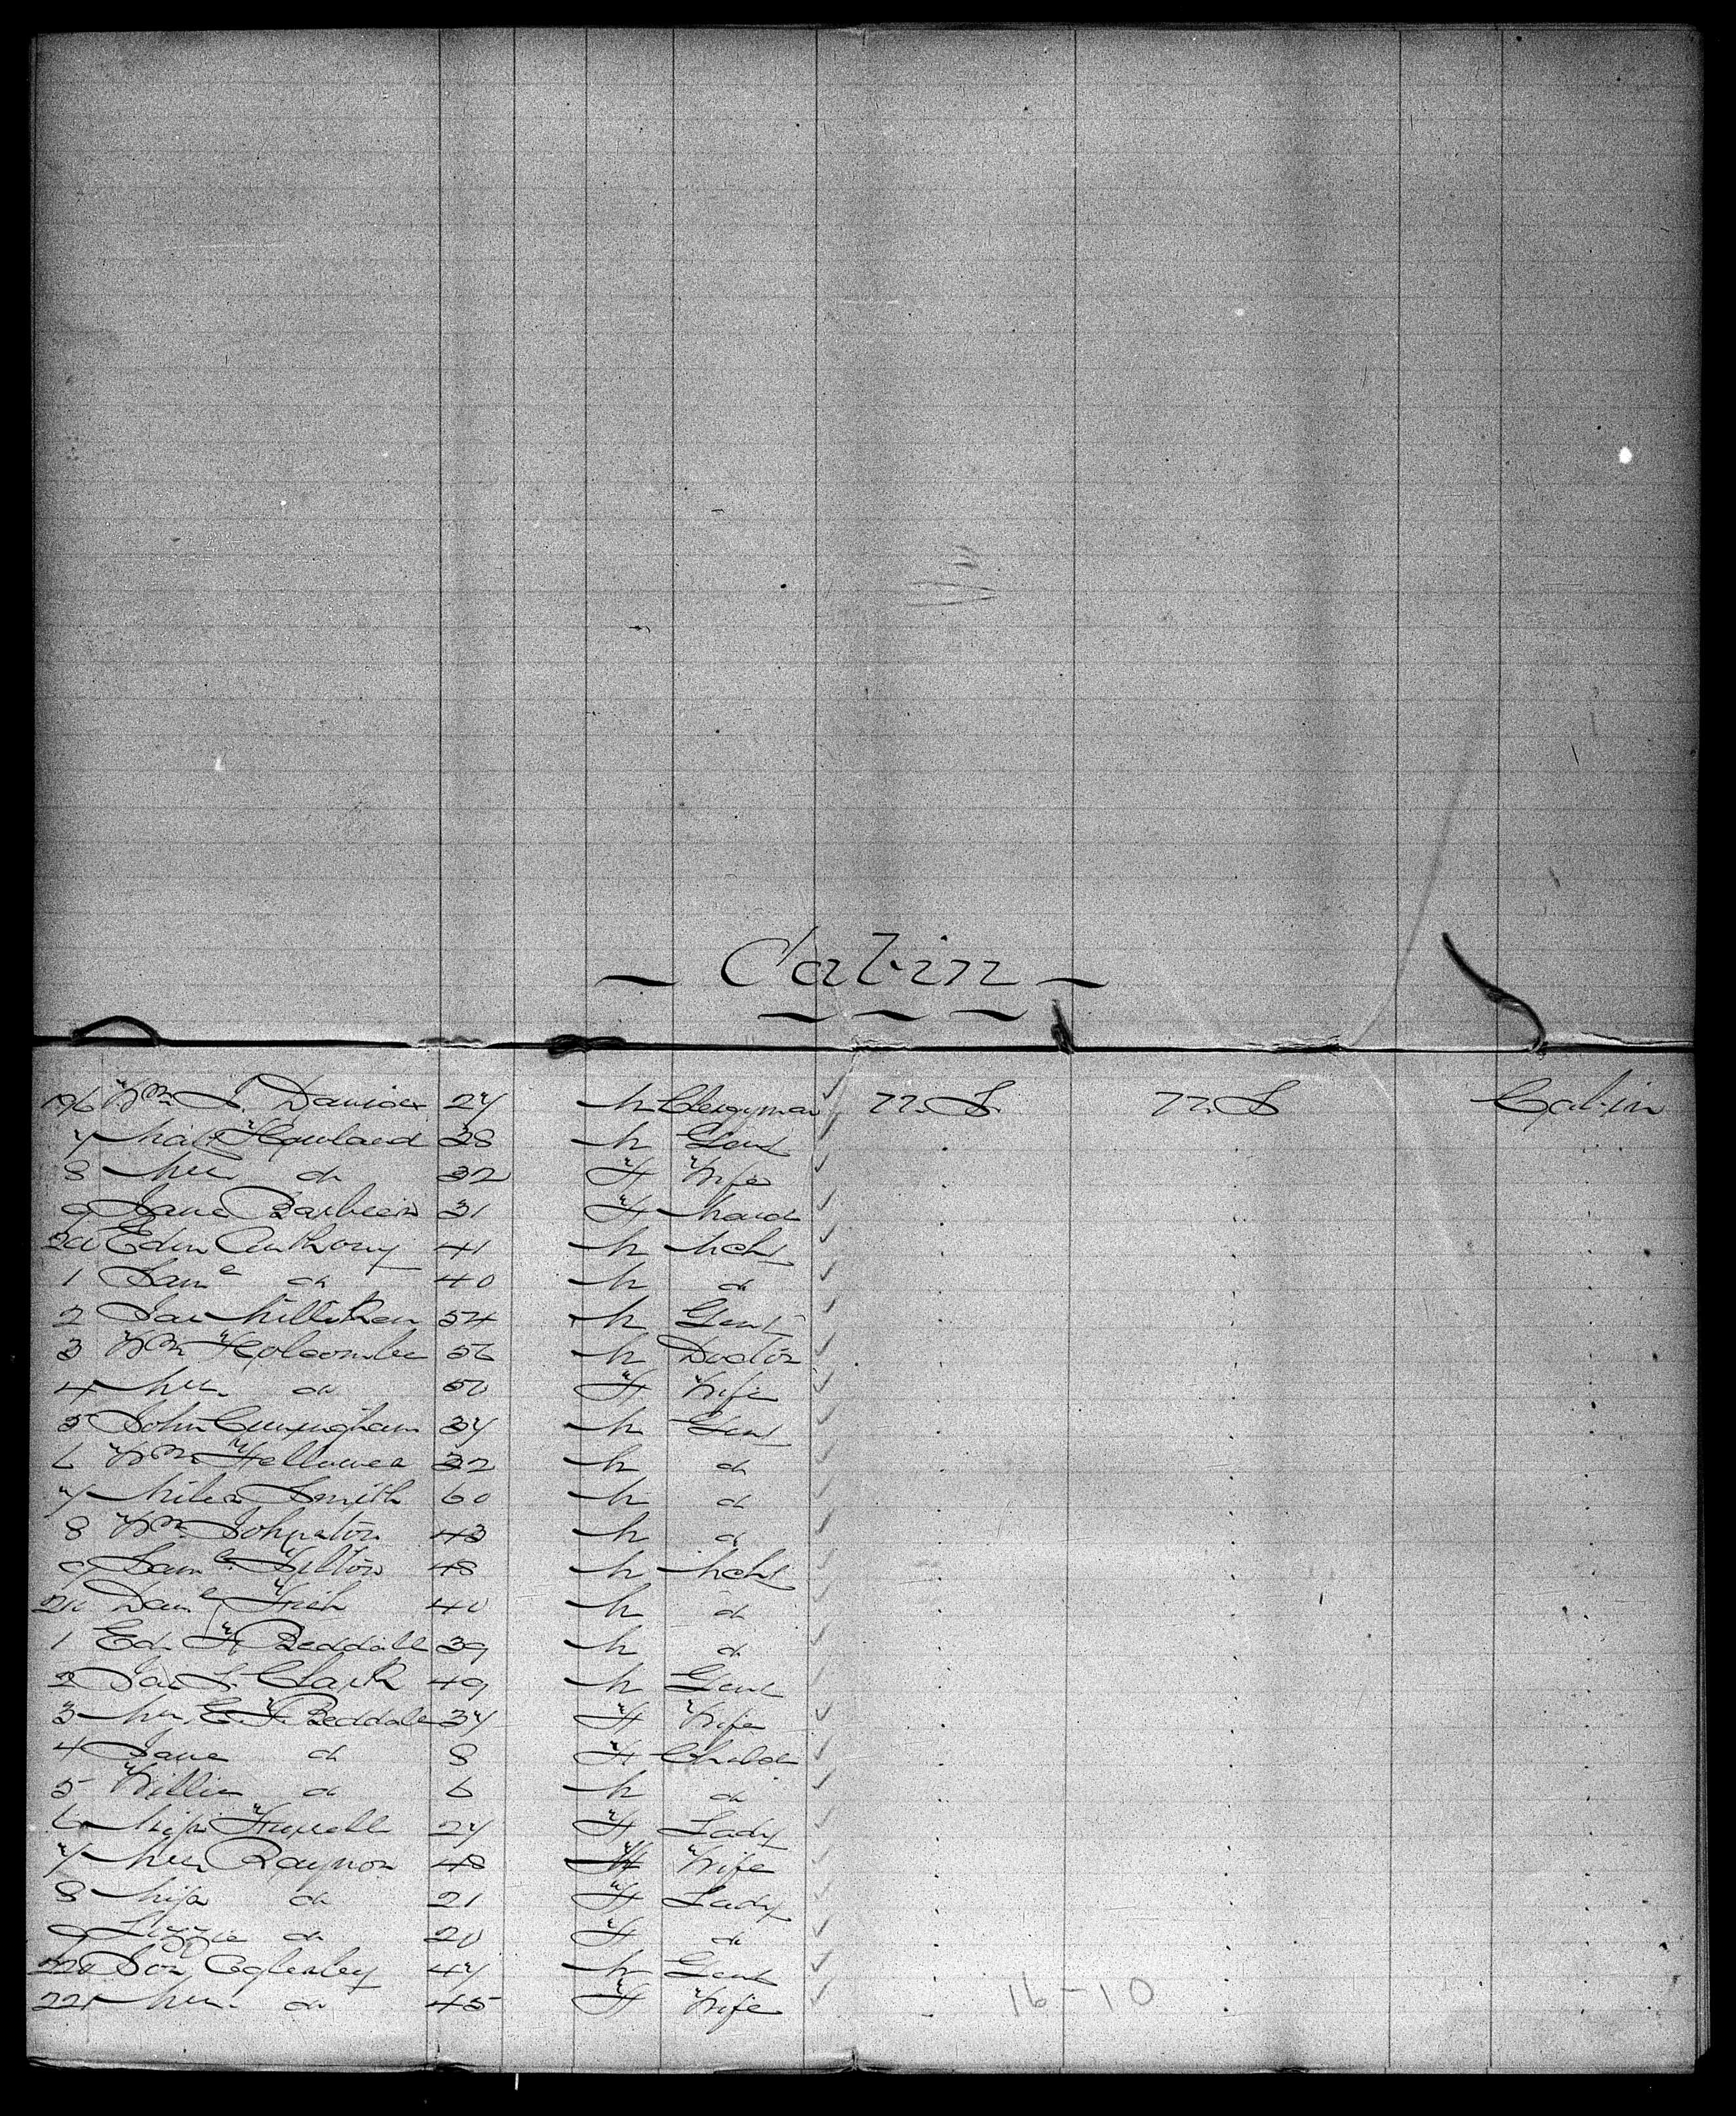 Cabin
196 Wm S. 24 M Clergyman U.S. U.S. Cabin
7 Howland 38 M Gent
8 Mrs do 32 F Wife
9 Jane 31 F Maid
200 Edw Anthony 41 M Mcht
1 Saml do 40 M do
2 Jas Milliken 54 M Gent
3 Wm Holcombe 56 M Doctor
4 Mrs do 50 F Wife
5 John Cunningham 34 M Gent
6 Wm Fellowes 32 M do
7 Miles Smith 60 M do
8 Wm Johnston 43 M do
9 Saml 48 M Mcht
210 Danl 40 M do
1 Ed. F. Beddall 39 M do
2 Jas S. Clark 49 M Gent
3 Mrs E. F. Beddall 34 F Wife
4 Jane do 8 F Child
5 Willie do 6 M do
6 Miss 24 F Lady
7 Mrs Raynor 48 F Wife
8 Miss do 21 F Lady
9 Lizzie do 20 F do
220 Jos Eglesley 47 M Gent
221 Mrs do 45 F Wife
16-10